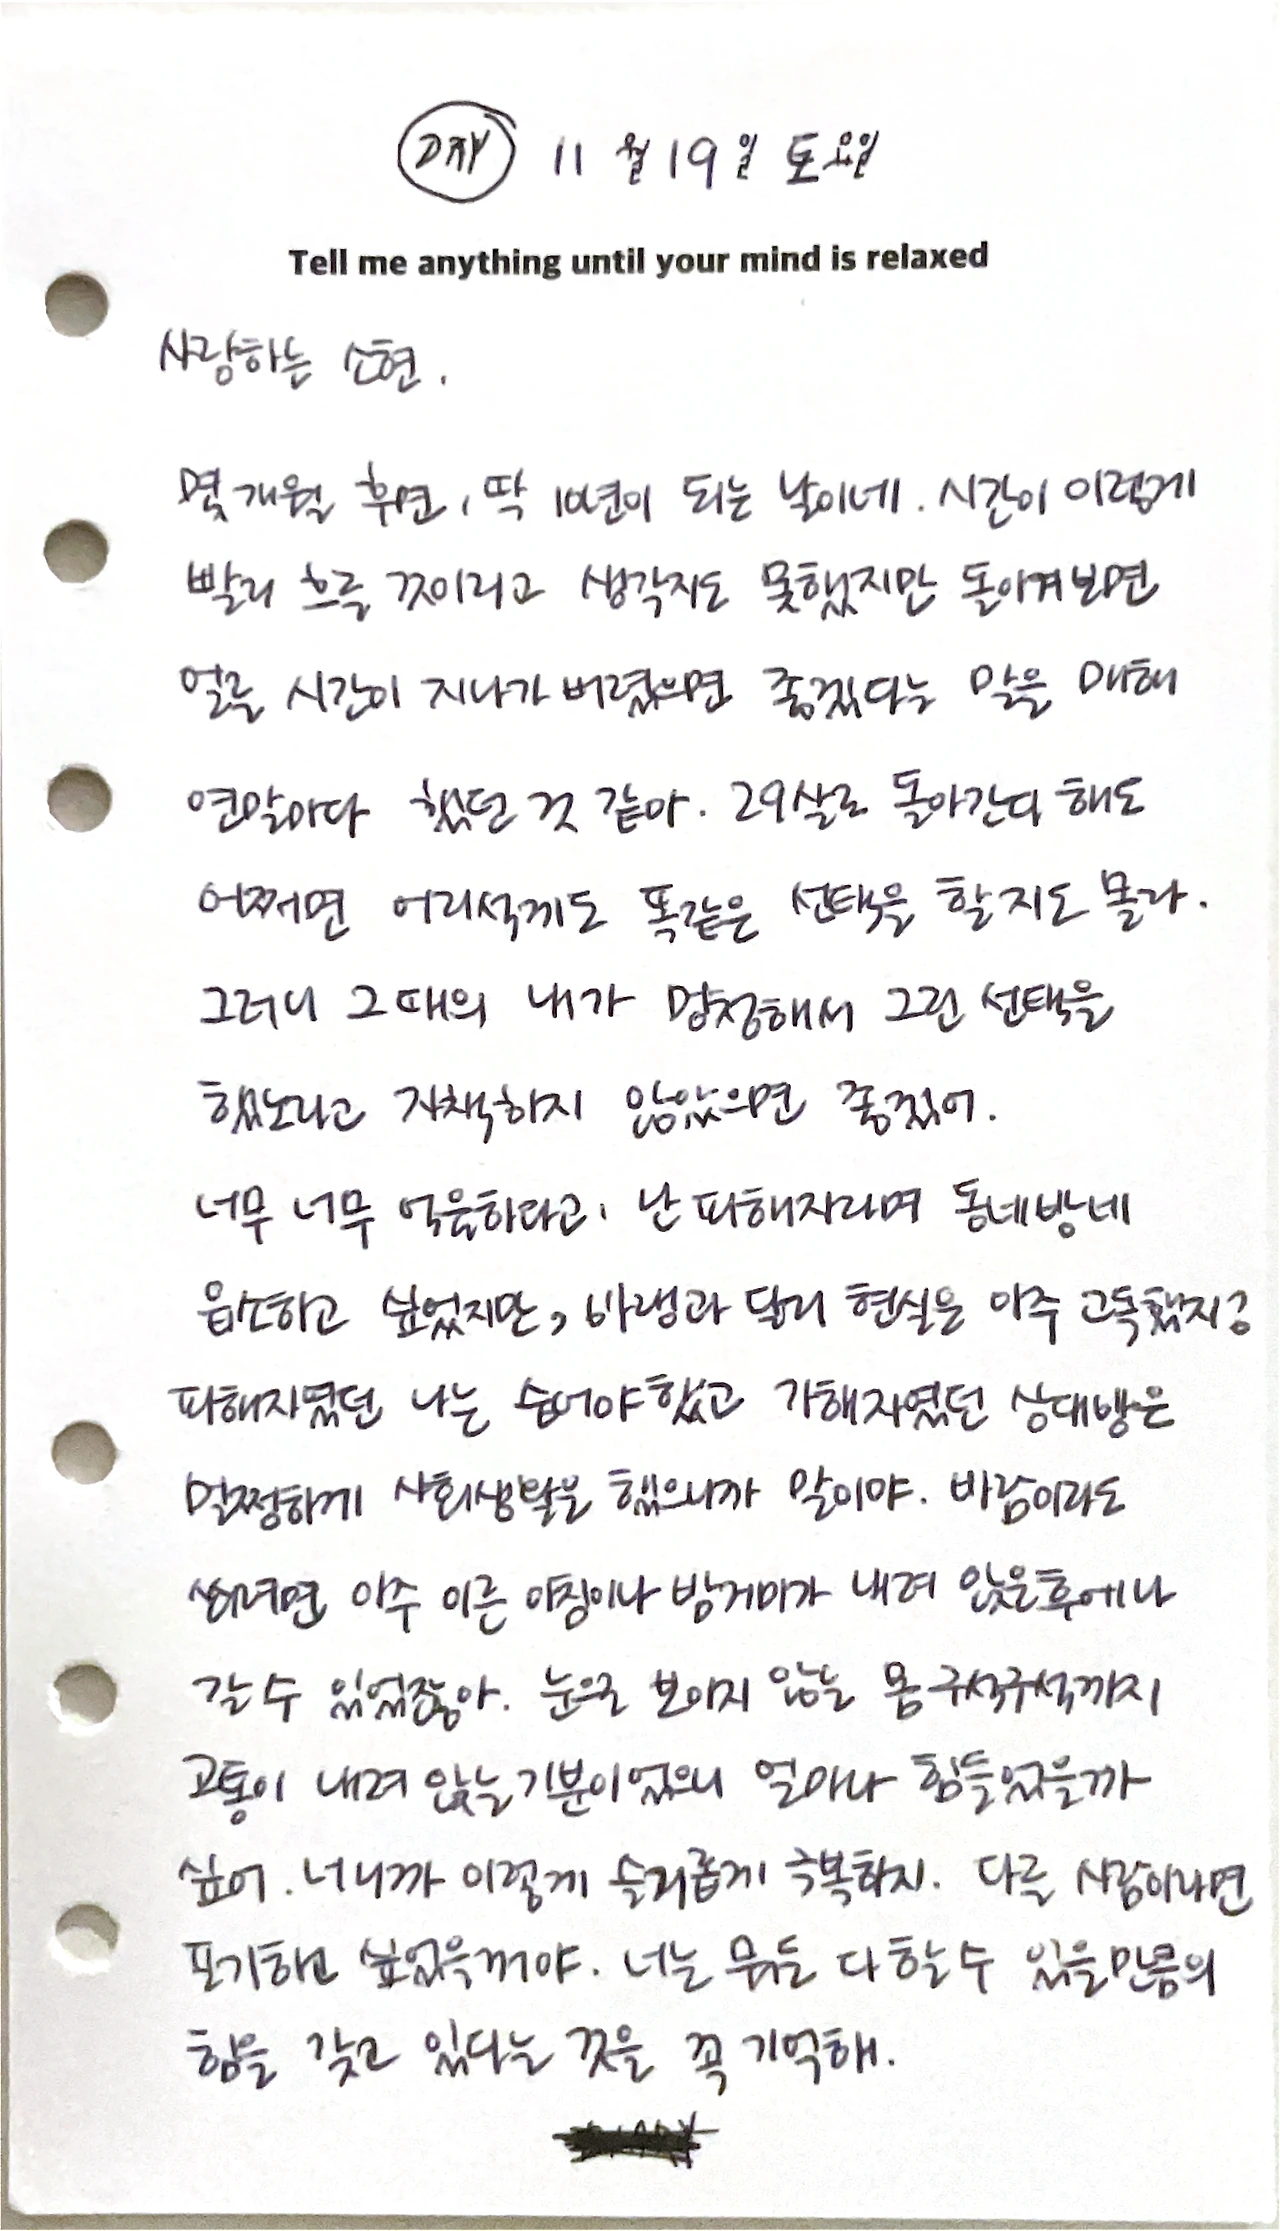 DAY 11월 19일 토요일
Tell me anything until your mind is relaxed
사랑하는 소현.
몇 개월 후면, 딱 10년이 되는 날이네. 시간이 이렇게
빨리 흐를 것이라고 생각지도 못했지만 돌이켜보면
얼른 시간이 지나가 버렸으면 좋겠다는 말을 매해
연말마다 했던 것 같아. 29살로 돌아간다 해도
어쩌면 어리석게도 똑같은 선택을 할지도 몰라.
그러니 그때의 내가 멍청해서 그런 선택을
했노라고 자책하지 않았으면 좋겠어.
너무 너무 억울하다고, 난 피해자라며 동네방네
읍소하고 싶었지만, 바램과 달리 현실은 아주 고독했지.
피해자였던 나는 숨어야 했고 가해자였던 상대방은
멀쩡하게 사회생활을 했으니까 말이야. 바람이라도
쐬려면 아주 이른 아침이나 땅거미가 내려 앉은 후에나
갈 수 있었잖아. 눈으로 보이지 않는 몸 구석구석까지
고통이 내려 앉는 기분이었으니 얼마나 힘들었을까
싶어. 너니까 이렇게 슬기롭게 극복하지. 다른 사람이라면
포기하고 싶었을꺼야. 너는 뭐든 다 할 수 있을만큼의
힘을 갖고 있다는 것을 꼭 기억해.